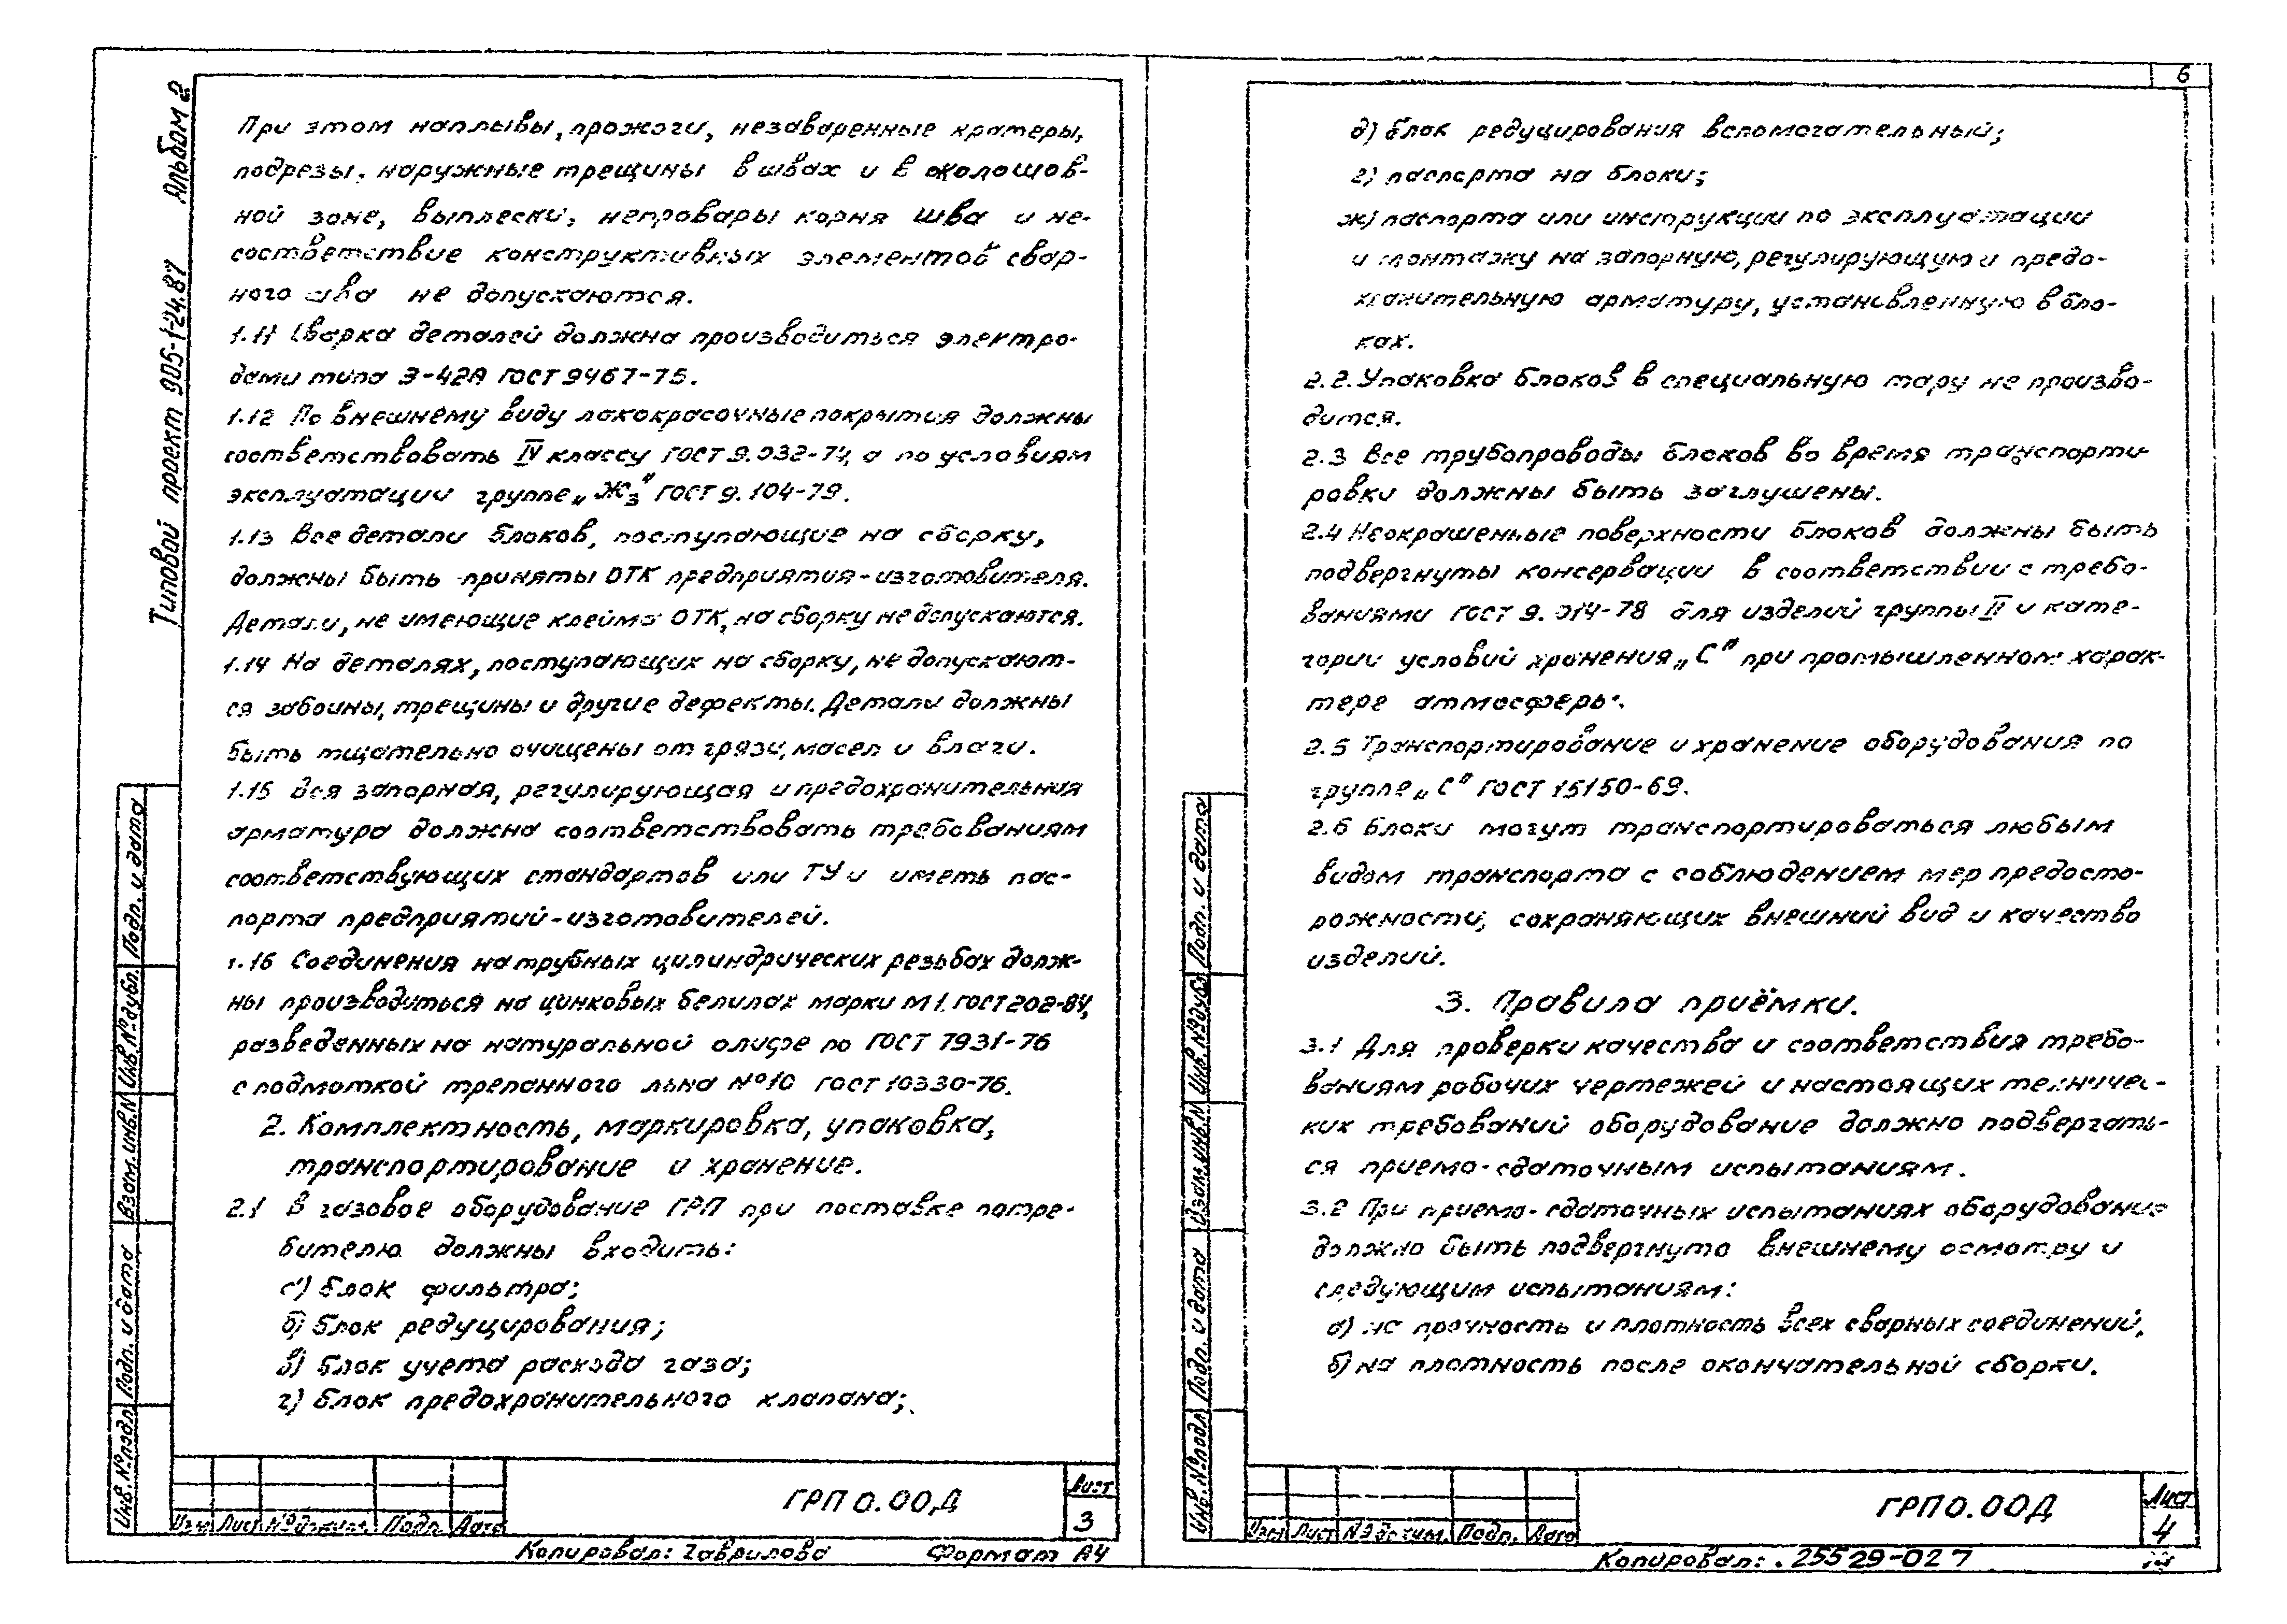 Альбом 2
Типовой проект 905-1-24.87
При этом наплывы, прожоги, незаваренные кратеры,
подрезы, наружные трещины в швах и в околошов-
ной зоне, выплески, непровары корня шва и не-
соответствие конструктивных элементов свар-
ного шва не допускаются.
1.11 Сварка деталей должна производиться электро-
дами типа Э-42А ГОСТ 9467-75.
1.12 По внешнему виду лакокрасочные покрытия должны
соответствовать IV классу ГОСТ 9.032-74, а по условиям
эксплуатации группе „Ж3" ГОСТ 9.104-79.
1.13 Все детали блоков, поступающие на сборку,
должны быть приняты ОТК предприятия-изготовителя.
Детали, не имеющие клейма ОТК, на сборку не допускаются.
1.14 На деталях, поступающих на сборку, не допускают-
ся забоины, трещины и другие дефекты. Детали должны
быть тщательно очищены от грязи, масел и влаги.
1.15 Вся запорная, регулирующая и предохранительная
арматура должна соответствовать требованиям
соответствующих стандартов или ТУ и иметь пас-
порта предприятий-изготовителей.
1.16 Соединения на трубных цилиндрических резьбах долж-
ны производиться на цинковых белилах марки М1. ГОСТ 202-84,
разведенных на натуральной олифе по ГОСТ 7931-76
с подмоткой трепанного льна №10 ГОСТ 10330-76.
2. Комплектность, маркировка, упаковка,
транспортирование и хранение.
2.1 В газовое оборудование ГРП при поставке потре-
бителю должны входить:
а) блок фильтра;
б) блок редуцирования;
в) блок учета расхода газа;
г) блок предохранительного клапана;
Подп. и дата
Инв.№дубл.
Взам.инв.N
Подп. и дата
Инв.№подл
Изм Лист №докум. Подп. Дата
ГРП 0.00Д
Лист
3
Копировал: Гаврилова Формат А4
6
д) блок редуцирования вспомогательный;
е) паспорта на блоки;
ж) паспорта или инструкции по эксплуатации
и монтажу на запорную, регулирующую и предо-
хранительную арматуру, установленную в бло-
ках.
2.2. Упаковка блоков в специальную тару не произво-
дится.
2.3 Все трубопроводы блоков во время транспорти-
ровки должны быть заглушены.
2.4 Неокрашенные поверхности блоков должны быть
подвергнуты консервации в соответствии с требо-
ваниями ГОСТ 9.014-78 для изделий группы II и кате-
гории условий хранения „С" при промышленном харак-
тере атмосферы.
2.5 Транспортирование и хранение оборудования по
группе „С" ГОСТ 15150-69.
2.6 Блоки могут транспортироваться любым
видом транспорта с соблюдением мер предосто-
рожности, сохраняющих внешний вид и качество
изделий.
3. Правила приёмки.
3.1 Для проверки качества и соответствия требо-
ваниям рабочих чертежей и настоящих техничес-
ких требований оборудование должно подвергать-
ся приемо-сдаточным испытаниям.
3.2 При приемо-сдаточных испытаниях оборудование
должно быть подвергнуто внешнему осмотру и
следующим испытаниям:
а) на прочность и плотность всех сварных соединений,
б) на плотность после окончательной сборки.
Подп. и дата
Инв.№дубл
Взам.инв.N
Подп. и дата
Инв.№подл
Изм Лист №докум. Подп. Дата
ГРП 0.00Д
Лист
4
Копировал: 25529-02 7